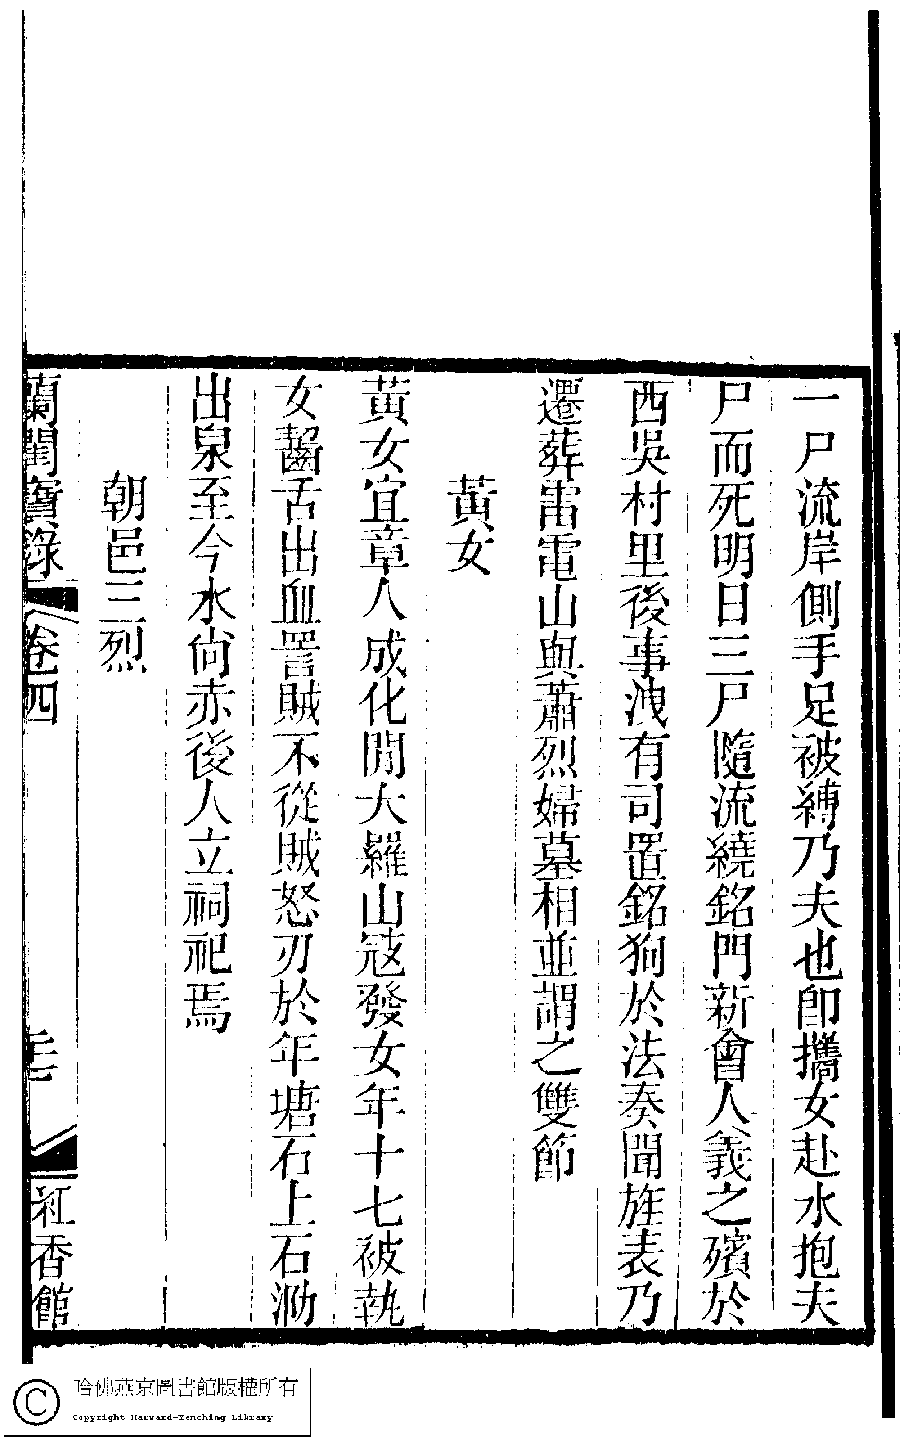 一尸流岸側手足被縛乃夫也卽攜女赴水抱夫
尸而死明日三尸隨流繞銘門新會人義之殯於
西吳村里後事洩有司置銘狥於法奏聞旌表乃
遷葬雷電山與蕭烈婦墓相並謂之雙節
黃女
黃女宜章人成化閒大羅山寇發女年十七被執
女齧舌出血詈賊不從賊怒刃於年塘石上石泐
出泉至今水尙赤後人立祠祀焉
朝邑三烈
蘭閨寶錄
卷四
紅香館
哈佛燕京圖書館版權所有
Copyright Harvard-Yenching Library